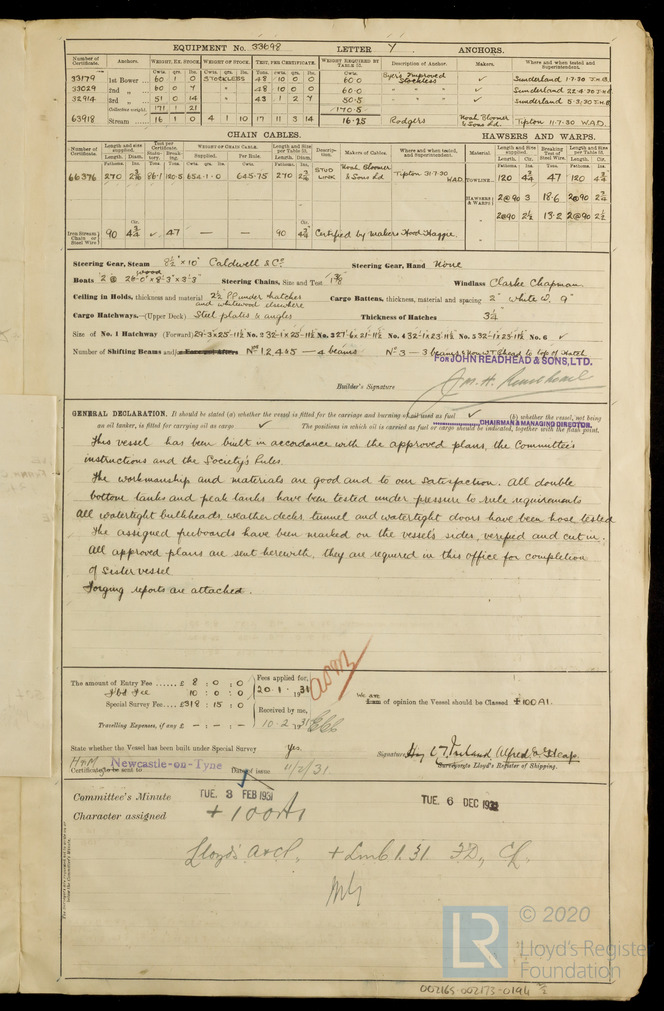 EQUIPMENT No. 33698 LETTER Y ANCHORS.
Number of Certificate. Anchors. WEIGHT, EX. STOCK. WEIGHT OF STOCK. TEST, PER CERTIFICATE. WEIGHT REQUIRED BY TABLE 53. Description of Anchor. Makers. Where and when tested and Superintendent.
Cwts. qrs. lbs. Cwts. qrs. lbs. Tons. cwts. qrs. lbs. Cwts.
33179 1st Bower 60 1 0 STOCKLESS 48 10 0 0 60.0 Byer's Improved Stockless ✓ Sunderland 1.7.30 J.H.B.
33029 2nd „ 60 0 7 " 48 10 0 0 60.0 " " " ✓ Sunderland 22.4.30 J.H.B.
32914 3rd „ 51 0 14 " 43 1 2 7 50.5 " " " ✓ Sunderland 5.3.30 J.H.B.
Collective weight 171 1 21 170.5
63918 Stream 16 1 0 4 1 10 17 11 3 14 16.25 Rodgers Noah Bloomer & Sons Ld. Tipton 11.7.30 W.A.D.
CHAIN CABLES. HAWSERS AND WARPS.
66376 270 2 3/16 86.1 120.5 654.1.0 645.75 270 2 3/16 STUD LINK Noah Bloomer & Sons Ld Tipton 31.7.30 W.A.D. TOWLINE 120 4 3/4 47 120 4 3/4
HAWSERS & WARPS 2@90 3 18.6 2@90 2 3/4
" 2@90 2½ 13.2 2@90 2½
Iron Stream Chain or Steel Wire 90 4¾ ✓ 47 — — 90 4¾ Certified by makers Hood Haggie.
Steering Gear, Steam 8½" × 10" Caldwell & Co. Steering Gear, Hand None
Boats 2 @ 26'-0" × 8'-3" × 3'-3" wood Steering Chains, Size and Test 1 3/8 Windlass Clarke Chapman
Ceiling in Holds, thickness and material 2½" PP under hatches and whitewood elsewhere Cargo Battens, thickness, material and spacing 2" white W. 9"
Cargo Hatchways.—(Upper Deck) Steel plates & angles Thickness of Hatches 3¼"
Size of No. 1 Hatchway (Forward) 29-3×25-11½ No. 2 32-1×25-11½ No. 3 27-6×21-11½ No. 4 32-1×23-11½ No. 5 32-1×23-11½ No. 6 ✓
Number of Shifting Beams and/or Fore and Afters Nos 1 2 4 & 5 — 4 beams No 3 — 3 beams
FOR JOHN READHEAD & SONS, LTD.
Builder's Signature Jas. H. Readhead
CHAIRMAN & MANAGING DIRECTOR.
GENERAL DECLARATION. It should be stated (a) whether the vessel is fitted for the carriage and burning of oil used as fuel ✓ (b) whether the vessel, not being
an oil tanker, is fitted for carrying oil as cargo ✓ The positions in which oil is carried as fuel or cargo should be indicated, together with the flash point.
This vessel has been built in accordance with the approved plans, the Committee's
instructions and the Society's Rules.
The workmanship and materials are good and to our satisfaction. All double
bottom tanks and peak tanks have been tested under pressure to rule requirements
All watertight bulkheads, weather decks, tunnel and watertight doors have been hose tested
The assigned freeboards have been marked on the vessels sides, verified and cut in.
All approved plans are sent herewith, they are required in this office for completion
of Sister vessel
Forging reports are attached.
The amount of Entry Fee ...... £ 8 : 0 : 0 Fees applied for,
Fbd Fee 10 : 0 : 0 20.1. 1931
Special Survey Fee.... £318 : 15 : 0 Received by me,
Travelling Expenses, if any £ - : - : - 10.2.1931
We are of opinion the Vessel should be Classed +100A1.
State whether the Vessel has been built under Special Survey Yes.
Signature
Surveyors to Lloyd's Register of Shipping.
Newcastle-on-Tyne
Certificate to be sent to Date of issue 11/2/31
Committee's Minute TUE. 3 FEB 1931 TUE 6 DEC 1932
Character assigned +100A1
Lloyd's A&CP. + LMC 1.31 FD, CL.
LR
© 2020
Lloyd's Register
Foundation
002165-002173-0194 2/2